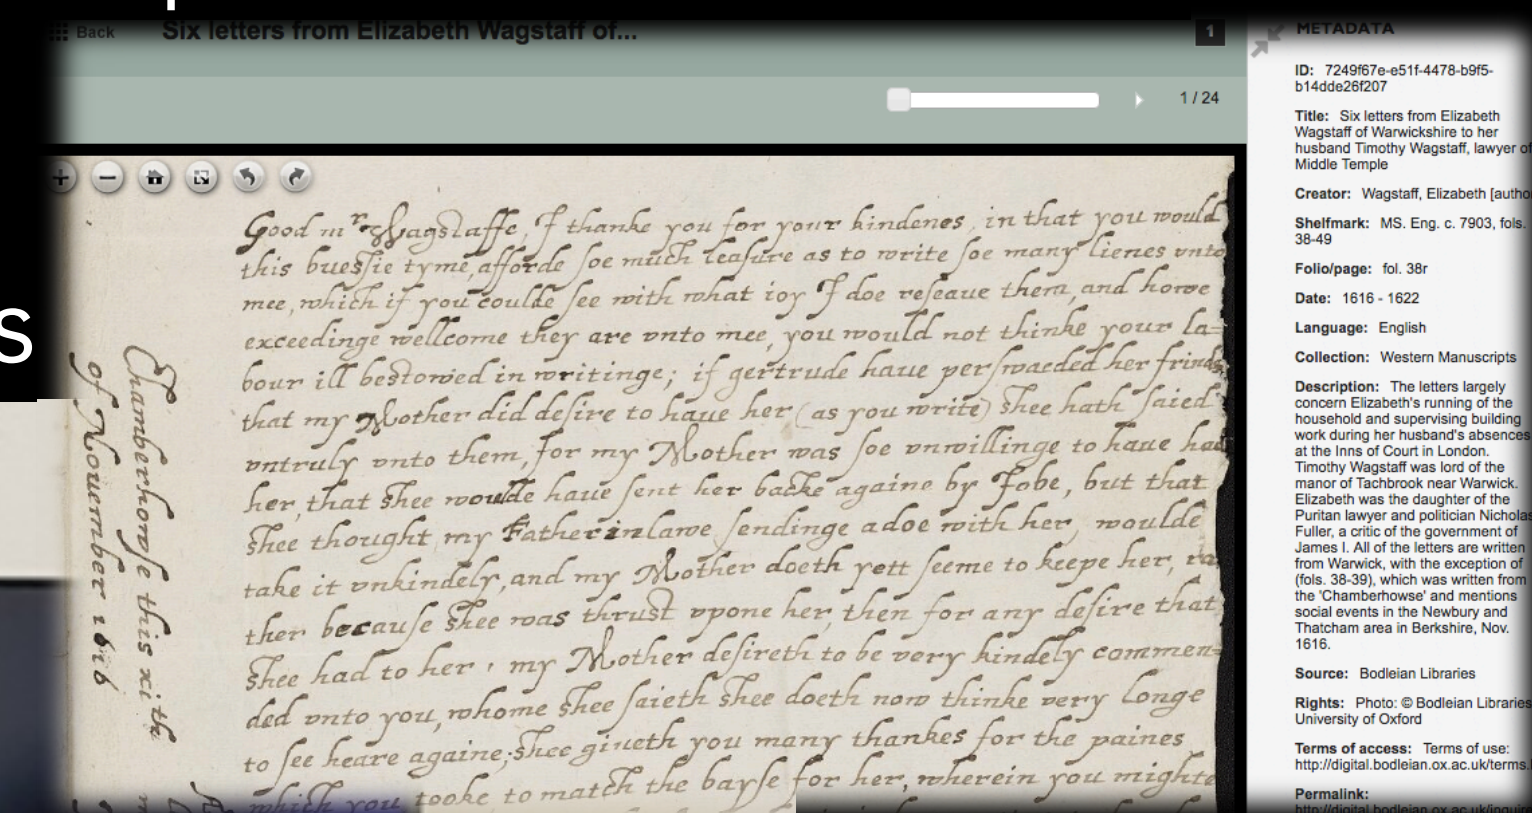 Back
Six letters from Elizabeth Wagstaff of...
1
1 / 24
s
Good mr Wagstaffe, I thanke you for your kindenes, in that you would
this buessie tyme, afforde soe much leasure as to write soe many lienes vnto
mee, which if you coulde see with what ioy I doe reseaue them, and howe
exceedinge wellcome they are vnto mee, you would not thinke your la=
bour ill bestowed in writinge; if gertrude haue perswaeded her frinds
that my Mother did desire to haue her (as you write) shee hath saied
vntruly vnto them, for my Mother was soe vnwillinge to haue had
her, that shee woulde haue sent her backe againe by Jobe, but that
shee thought my Father in lawe sendinge adoe with her, woulde
take it vnkindely, and my Mother doeth yett seeme to keepe her, ra
ther because shee was thrust vpone her, then for any desire that
shee had to her, my Mother desireth to be very kindely commen=
ded vnto you, whome shee saieth shee doeth now thinke very longe
to see heare againe; shee giueth you many thankes for the paines
which you tooke to match the bayse for her, wherein you mighte
Chamberhowse this xith
of Nouember 1616
METADATA
ID: 7249f67e-e51f-4478-b9f5-
b14dde26f207
Title: Six letters from Elizabeth
Wagstaff of Warwickshire to her
husband Timothy Wagstaff, lawyer of
Middle Temple
Creator: Wagstaff, Elizabeth [autho
Shelfmark: MS. Eng. c. 7903, fols.
38-49
Folio/page: fol. 38r
Date: 1616 - 1622
Language: English
Collection: Western Manuscripts
Description: The letters largely
concern Elizabeth's running of the
household and supervising building
work during her husband's absences
at the Inns of Court in London.
Timothy Wagstaff was lord of the
manor of Tachbrook near Warwick.
Elizabeth was the daughter of the
Puritan lawyer and politician Nicholas
Fuller, a critic of the government of
James I. All of the letters are written
from Warwick, with the exception of
(fols. 38-39), which was written from
the 'Chamberhowse' and mentions
social events in the Newbury and
Thatcham area in Berkshire, Nov.
1616.
Source: Bodleian Libraries
Rights: Photo: © Bodleian Libraries
University of Oxford
Terms of access: Terms of use:
http://digital.bodleian.ox.ac.uk/terms.
Permalink:
http://digital.bodleian.ox.ac.uk/inquire